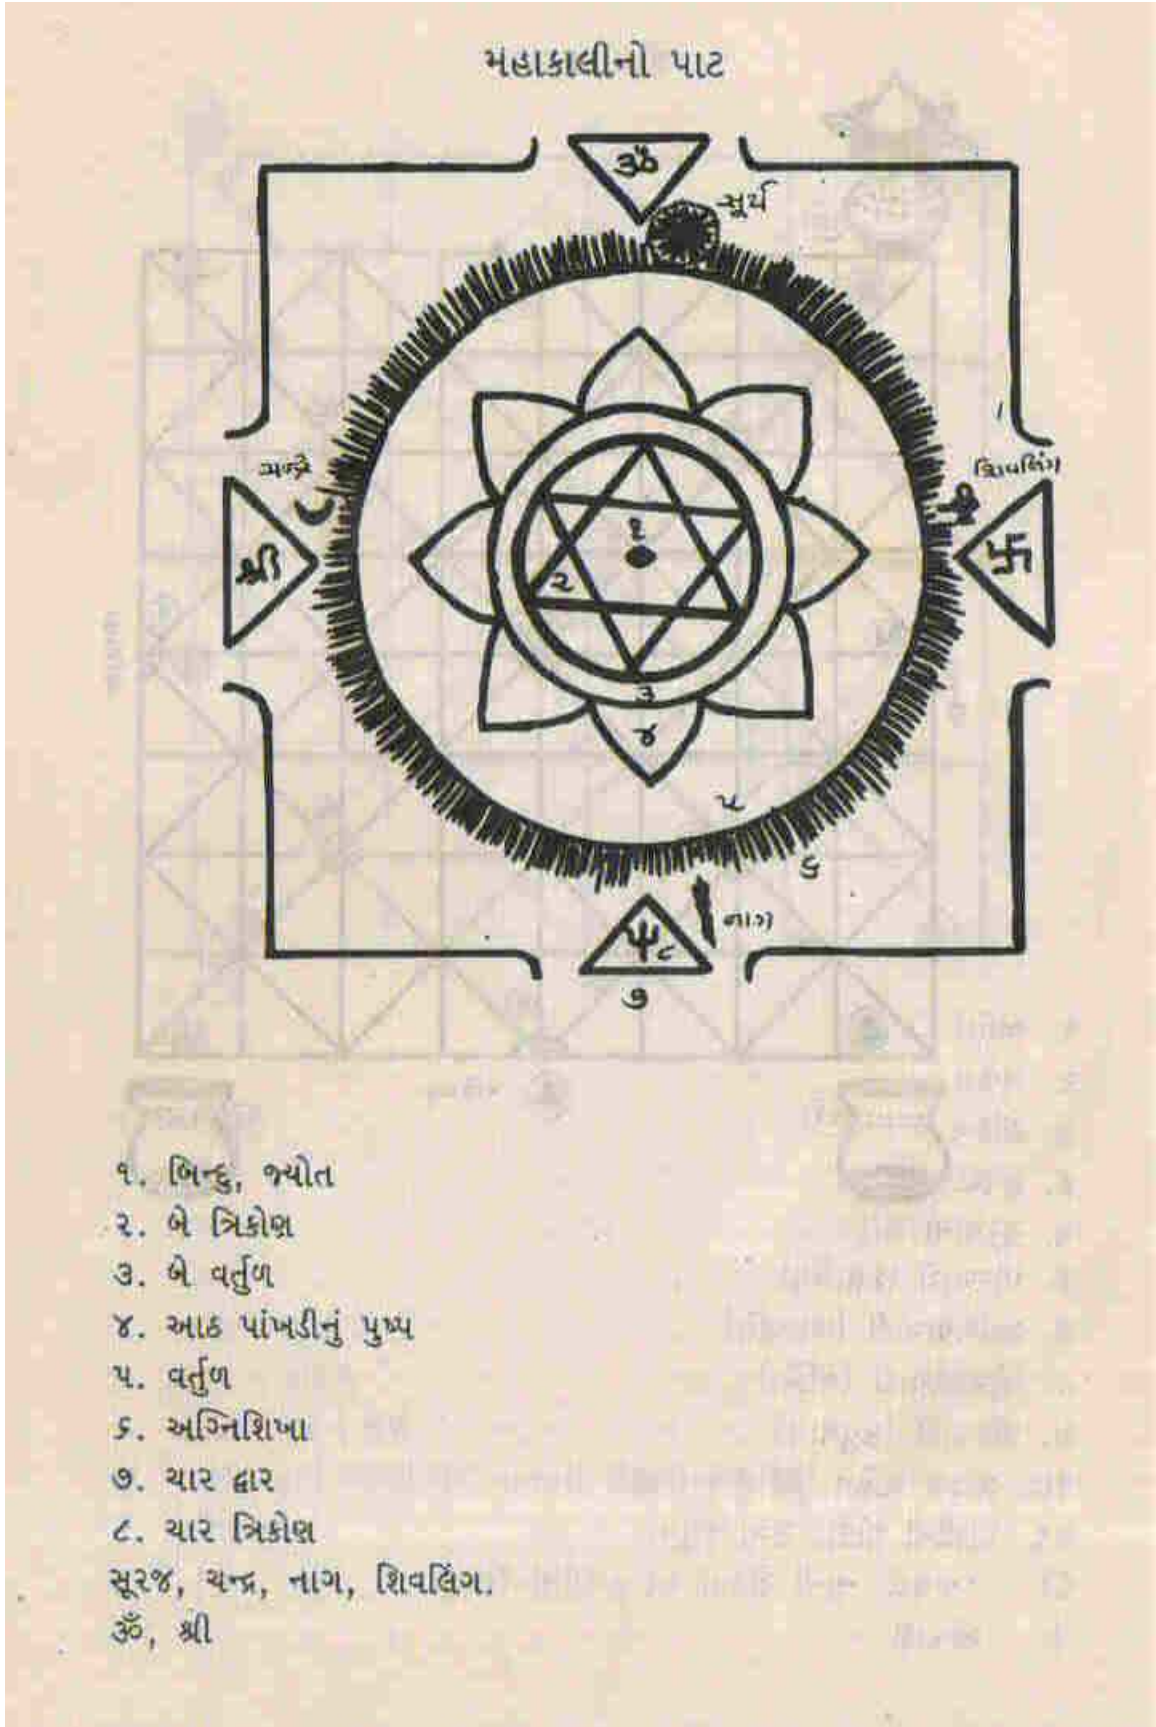 મહાકાલીનો પાટ
ૐ
સૂર્ય
ચન્દ્ર
શિવલિંગ
શ્રી
૧
૨
૩
૪
૫
૬
નાગ
૮
૭
૧. બિન્દુ, જ્યોત
૨. બે ત્રિકોણ
૩. બે વર્તુળ
૪. આઠ પાંખડીનું પુષ્પ
૫. વર્તુળ
૬. અગ્નિશિખા
૭. ચાર દ્વાર
૮. ચાર ત્રિકોણ
સૂરજ, ચન્દ્ર, નાગ, શિવલિંગ.
ૐ, શ્રી